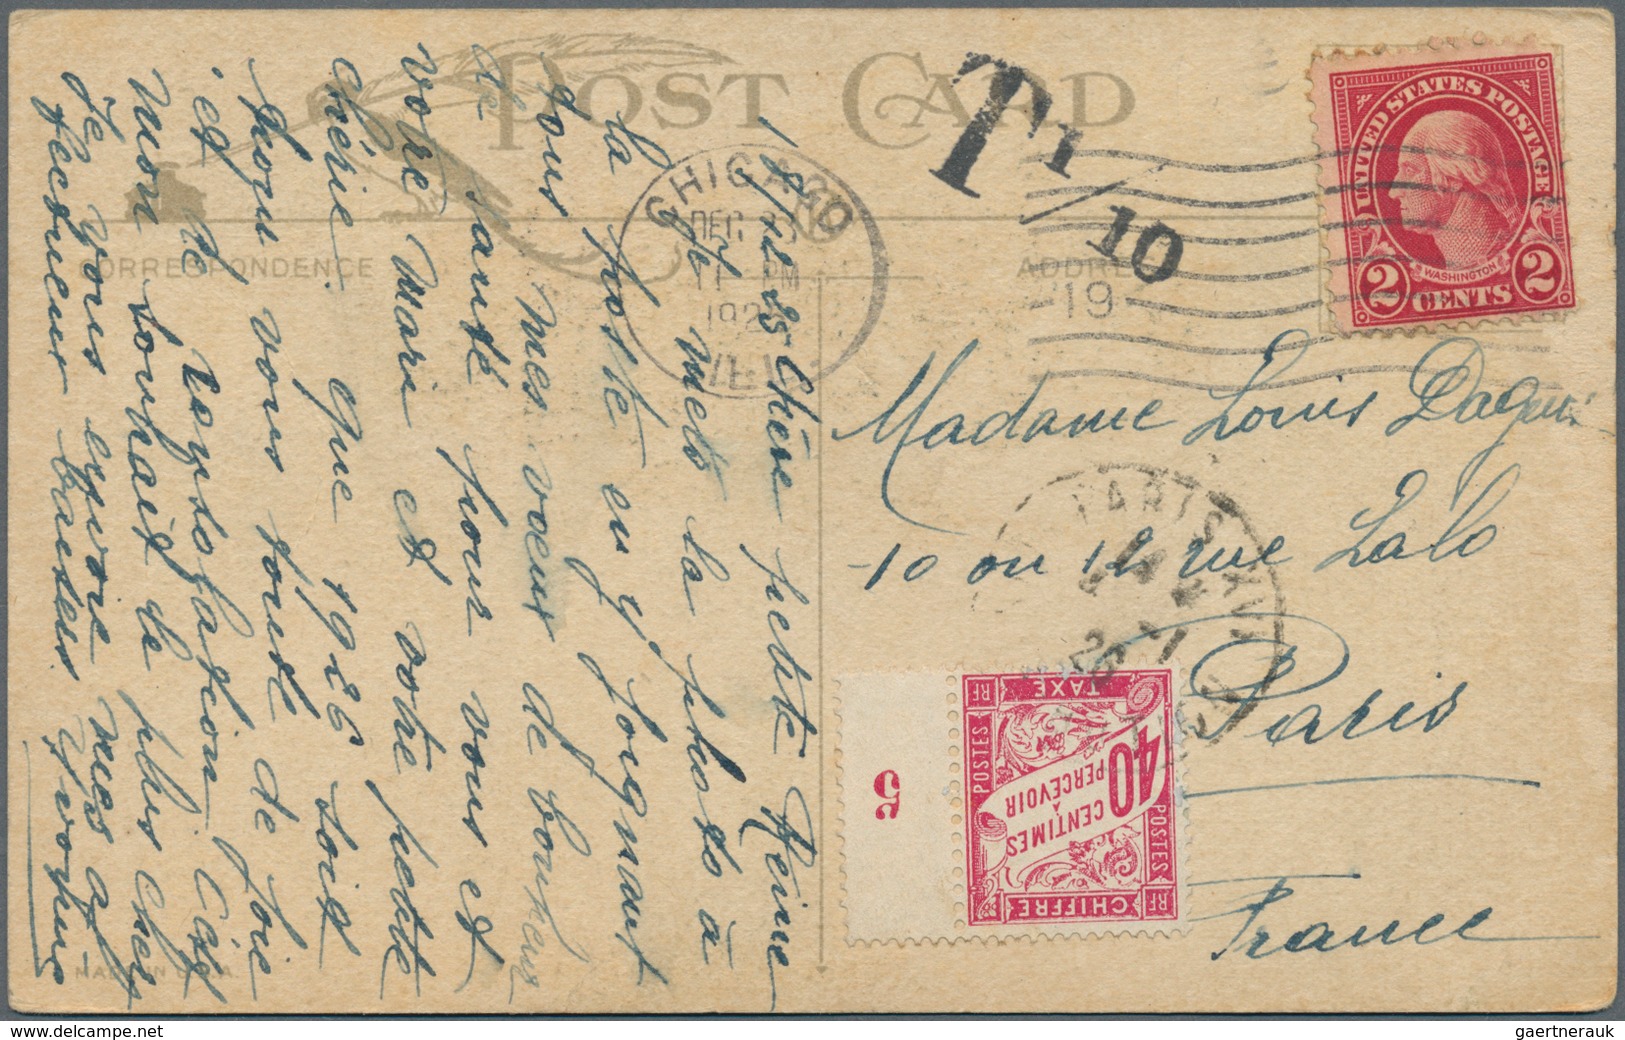 POST CARD
CORRESPONDENCE
ADDRE
MADE IN U.S.A.
T 1/10
CHICAGO
DEC 23
11 PM
192
ILL.
19
UNITED STATES POSTAGE
WASHINGTON
2 CENTS 2
Madame Louis
10 ou 12 rue Lalo
Paris
France
PARIS XVI
CHIFFRE
TAXE
POSTES
POSTES
RF
RF
RF
RF
40
CENTIMES
À
PERCEVOIR
5
Chère petite Reine
Je mets la photo à
la poste en y joignant
tous mes voeux de bonheur
de santé pour vous et
votre Mari et votre petite
chérie. Que 1926 soit
pour vous toute de joie
et de c'est
mon souhait le plus cher
Je vous envoie mes aff
baisers Yvonne
gaertnerauk
www.delcampe.net